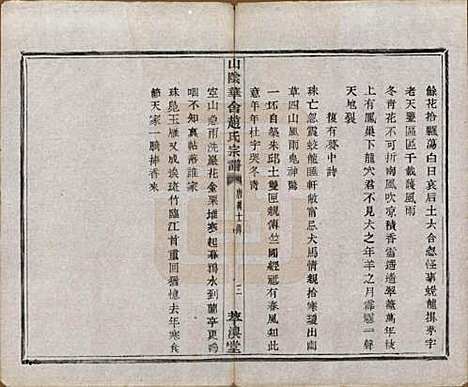 餘花拾飄蕩白日哀后土六合忽怪事蜕龍掛茅宇
老天鑒區區千載護風雨
冬青花不可折南風吹涼積香雪遙遙翠蓋萬年枝
上有鳳巢下龍穴君不見犬之年羊之月霹靂一聲
天地裂
復有夢中詩
珠亡忽震蛟龍匣軒敝寧忘犬馬情親拾寒瓊出幽
草四山風雨鬼神驚
一坏自築朱邱土雙匣親傳竺國經祗有春風知此
意年年杜宇哭冬青
山陰華舍趙氏宗譜
三
萃渙堂
空山急雨洗巖花金粟堆寒起暮鴉水到蘭亭更嗚
咽不知真帖落誰家
珠鳧玉雁又成埃斑竹臨江首重回猶憶去年寒食
節天家一騎捧香來